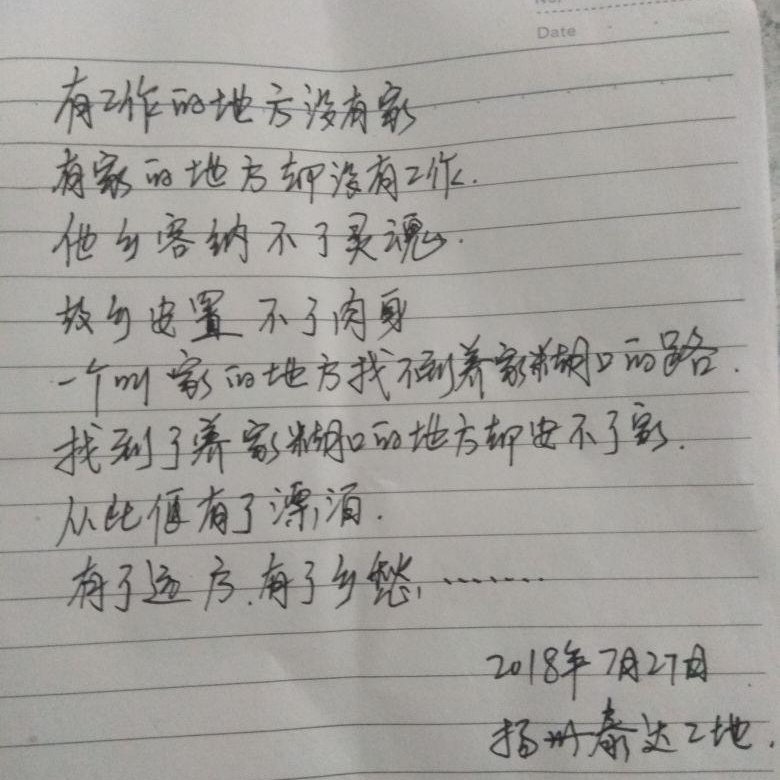 No:
Date
有工作的地方没有家
有家的地方却没有工作.
他乡容纳不了灵魂.
故乡安置不了肉身
一个叫家的地方找不到养家糊口的路.
找到了养家糊口的地方却安不了家.
从此便有了漂泊.
有了远方.有了乡愁.……
2018年7月27日
扬州泰达工地.